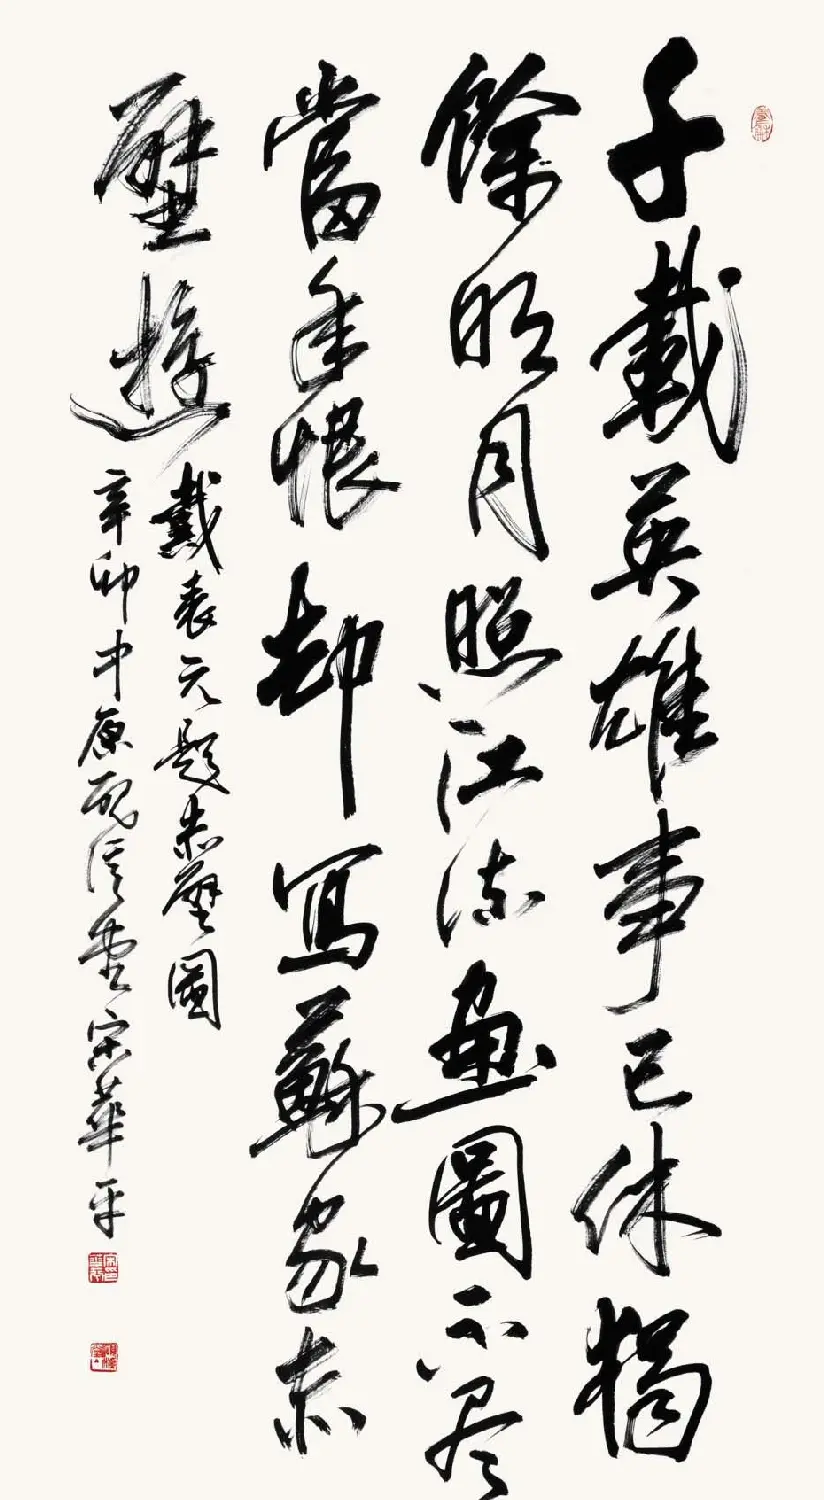 千載英雄事已休獨
餘明月照江流畫圖不尽
當年恨却寫蘇家赤
壁遊
戴表元題赤壁圖
辛卯中原宋華平